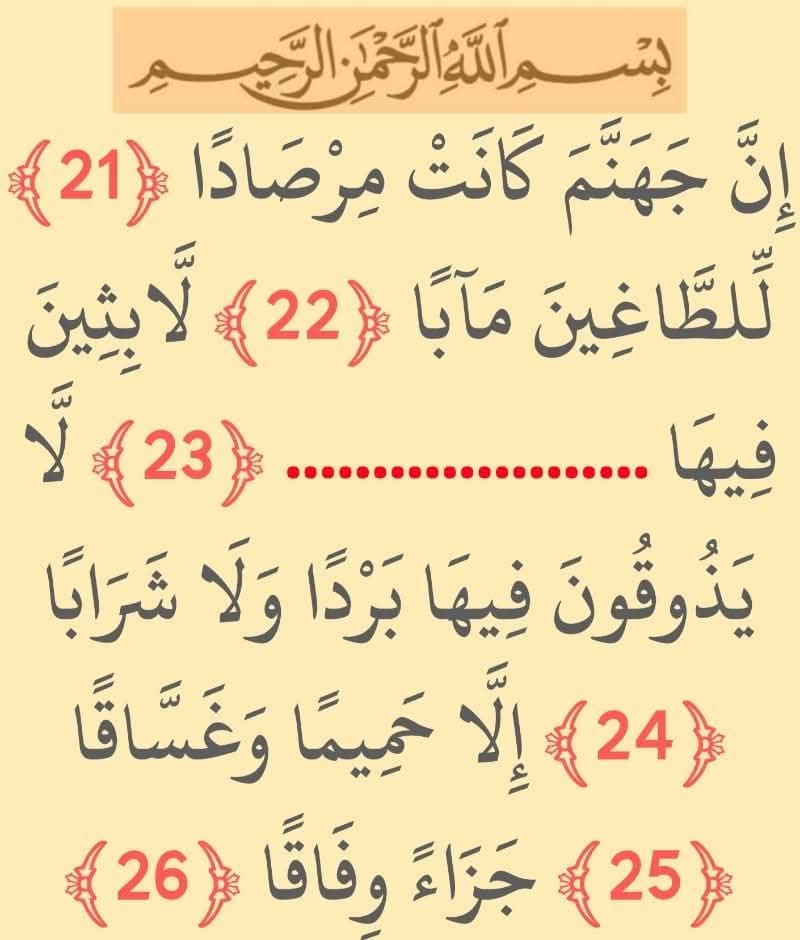 بِسْمِ ٱللَّهِ ٱلرَّحْمَٰنِ ٱلرَّحِيمِ
إِنَّ جَهَنَّمَ كَانَتْ مِرْصَادًا ﴿21﴾
لِّلطَّاغِينَ مَآبًا ﴿22﴾ لَّابِثِينَ
فِيهَا ..................... ﴿23﴾ لَّا
يَذُوقُونَ فِيهَا بَرْدًا وَلَا شَرَابًا
﴿24﴾ إِلَّا حَمِيمًا وَغَسَّاقًا
﴿25﴾ جَزَاءً وِفَاقًا ﴿26﴾